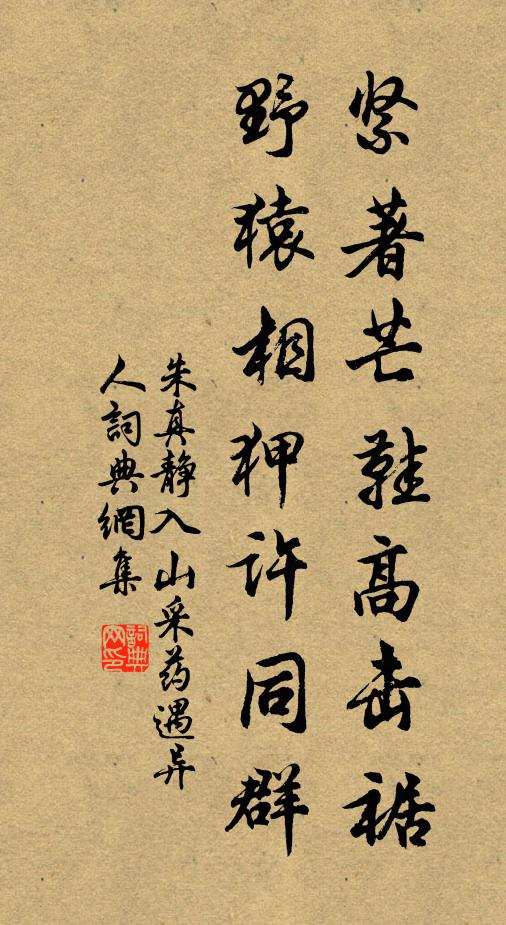 紧著芒鞋高击裾
野猿相狎许同群
朱真静入山采药遇异
人词典網集
詞典
网印